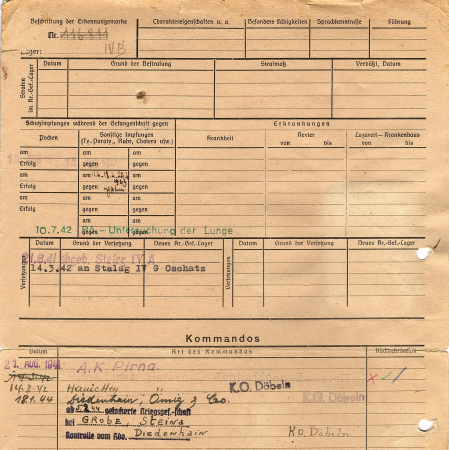 Beschriftung der Erkennungsmarke
Nr. 116811
Lager: IV B
Charaktereigenschaften u. a.
Besondere Fähigkeiten
Sprachkenntnisse
Führung
Strafen im Kr.-Gef.-Lager
Datum Grund der Bestrafung Strafmaß Verbüßt, Datum
Schutzimpfungen während der Gefangenschaft gegen
Erkrankungen
Pocken
Sonstige Impfungen
(Ty.-Paraty., Ruhr, Cholera usw.)
Krankheit
Revier
von bis
Lazarett - Krankenhaus
von bis
am am
Erfolg gegen
am am
Erfolg gegen
am am
Erfolg gegen
am am
Erfolg gegen
10.7.42 Rö.- Untersuchung der Lunge
Versetzungen
Datum Grund der Versetzung Neues Kr.-Gef.-Lager
Versetzungen
Datum Grund der Versetzung Neues Kr.-Gef.-Lager
Stalag IV A
14.3.42 an Stalag IV G Oschatz
Kommandos
Datum Art des Kommandos Rückkehrdatum
21. AUG. 1941 A.K Pirna.
14.3.42
K.O. Döbeln
18.1.44 Diedenhain, & Co.
K.O. Döbeln
ab 5.2.44 gelockerte Kriegsgef.-schaft
bei GROBE, STEINA
Kontrolle vom Kdo. Diedenhain
K.O. Döbeln